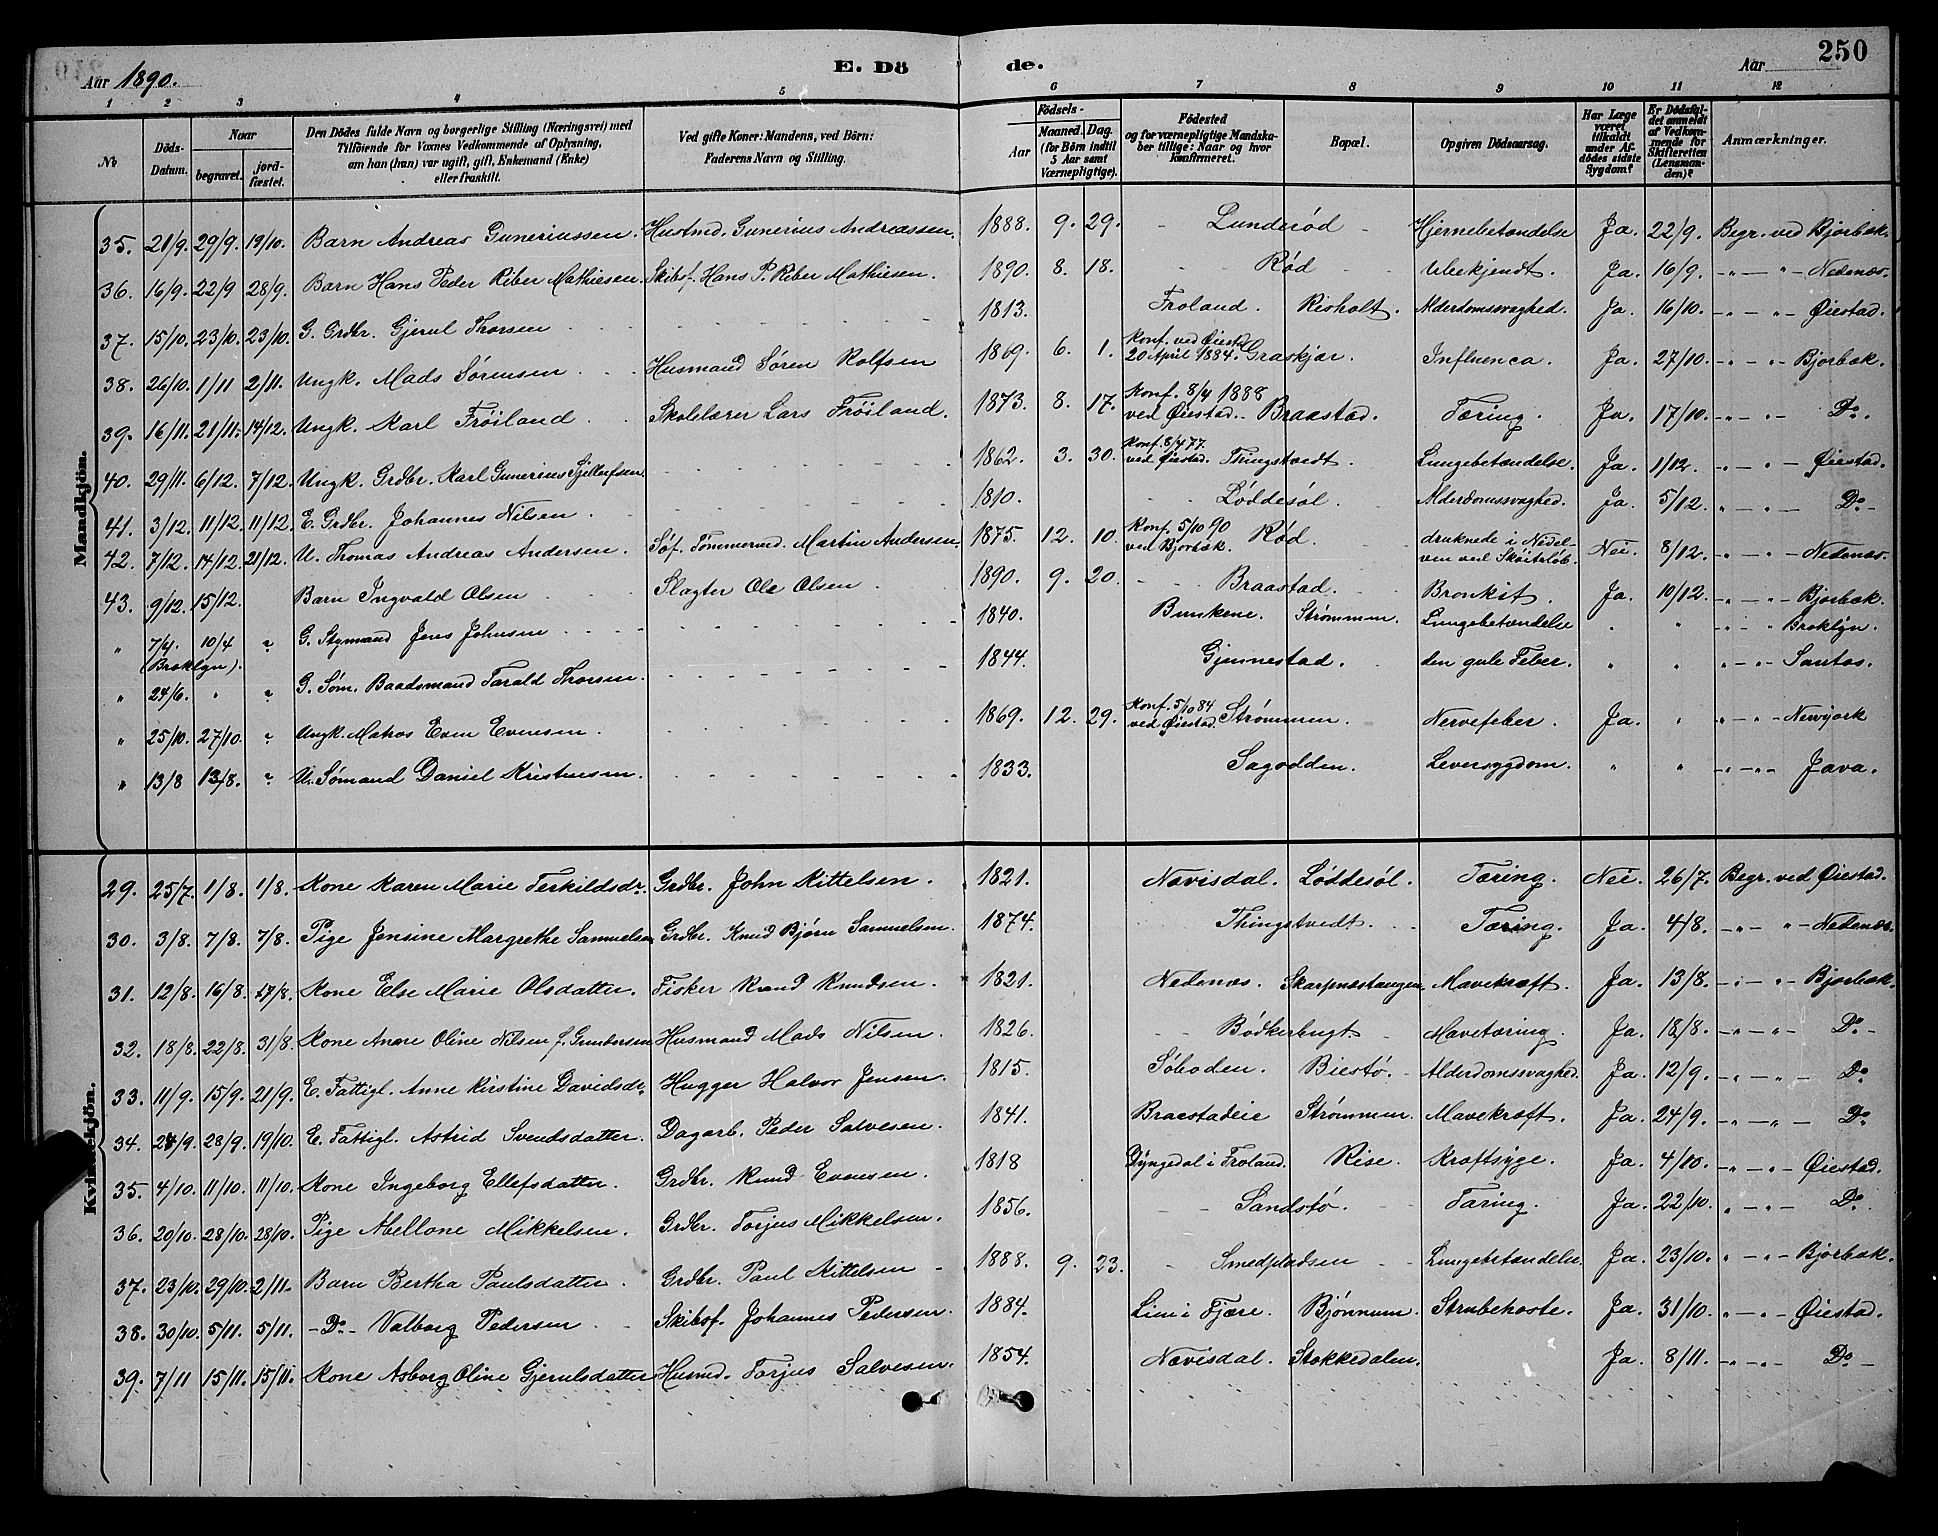 Aar 1890.
E. Dö de.
Aar 250
1 2 3 4 5 6 7 8 9 10 11 12
No
Döds-Datum.
Naar
begravet.
jordfæstet.
Den Dödes fulde Navn og borgerlige Stilling (Næringsvei) med Tilföiende for Voxnes Vedkommende af Oplysning, om han (hun) var ugift, gift, Enkemand (Enke) eller fraskilt.
Ved gifte Koner: Mandens, ved Börn: Faderens Navn og Stilling.
Födsels-
Aar
Maaned. Dag.
(for Börn indtil 5 Aar samt Værnepligtige).
Födested og for værnepligtige Mandskaber tillige: Naar og hvor konfirmeret.
Bopæl.
Opgiven Dödsaarsag.
Har Læge været tilkaldt under Afdödes sidste Sygdom?
Er Dödsfaldet anmeldt af Vedkommende for Skifteretten (Lensmanden)?
Anmærkninger.
Mandkjön.
35. 21/9. 29/9. 19/10. Barn Andreas Guneriussen. Hustmd. Gunerius Andreassen. 1888. 9. 29. - Lunderød - Hjernebetændelse Ja. 22/9. Begr. ved Bjorbæk.
36. 16/9. 22/9 28/9. Barn Hans Peder Riber Mathiesen. Skibsf. Hans P. Riber Mathiesen. 1890. 8. 18. - - Rød - - Ubekjendt. Ja. 16/9. -"- " - Nedenæs.
37. 15/10. 23/10. 23/10. G. Grdbr. Gjerul Thorsen - - - 1813. Froland. Risholt. Alderdomssvaghed. Ja. 16/10. -"- " - Øiestad.
38. 26/10. 1/11 2/11. Ungk. Mads Sørensen - - Husmand Søren Rolfsen 1869. 6. 1. Konf. ved Øiestd 20 April 1884. Graskjær. Influenca. Ja. 27/10. -"- " - Bjorbæk.
39. 16/11. 21/11. 14/12. Ungk. Karl Frøiland - - Skolelærer Lars Frøiland. 1873. 8. 17. Konf. 8/4 1888 ved Øiestad. - Braastad. Tæring. Ja. 17/10. -"- " - Do.
40. 29/11. 6/12. 7/12. Ungk. Grdbr. Karl Gunerius Tjellefsen - - - 1862. 3. 30. Konf. 8/4 77. ved Øiestad. Thingstvedt. Lungebetændelse. Ja. 1/12. -"- " - Øiestad.
41. 3/12. 11/12. 11/12. E. Grdbr. Johannes Nilsen - - - 1810. - - Løddesøl. Alderdomssvaghed. Ja. 5/12. "- " - Do -
42. 7/12. 14/12. 21/12. U. Thomas Andreas Andersen. Søf. Tømmermd. Martin Andersen. 1875. 12. 10. Konf. 5/10 90 ved Bjorbæk. Rød. druknede i Nedelven ved Skøiteløb. Nei. 8/12. "- " - Nedenæs.
43. 9/12. 15/12. Barn Ingvald Olsen - - Slagter Ole Olsen 1890. 9. 20. - - Braastad. - Bronkit. Ja. 10/12. "- " - Bjorbæk.
" 7/4. (Broklyn). 10/4 " G. Stymand Jens Johnsen - - - 1840. Bunkene. Strømmen. Lungebetændelse " " "- " Broklyn.
" 24/6. " " G. Søm. Baadsmand Tarald Thorsen. - - - 1844. Gjennestad. - den gule Feber. " " "- " - Santos.
" 25/10. 27/10. " Ungk. Matros Even Evensen. - - - 1869. 12. 29. Konf. 5/10 84 ved Øiestad. Strømmen. Nervefeber. Ja. " "- " - Newyork
" 13/8 13/8. " U. Sømand Daniel Kristensen. - - - 1833. Sagodden. Leversygdom. " " "- " - Java.
Kvindekjön.
29. 25/7. 1/8. 1/8. Kone Karen Marie Terkildsdr. Grdbr. John Kittelsen. 1821. Nævisdal. Løddesøl. Tæring. Nei. 26/7. Begr. ved Øiestad.
30. 3/8. 7/8. 7/8. Pige Jensine Margrethe Samuelsen Grdbr. Knud Bjørn Samuelsen. 1874. Thingstvedt - - Tæring. Ja. 4/8. -"- " - Nedenæs.
31. 12/8. 16/8. 17/8. Kone Else Marie Olsdatter. Fisker Knud Knudsen. 1821. Nedenæs. Skarpnæstangen. Mavekræft. Ja. 13/8. -"- " - Bjorbæk.
32. 18/8. 22/8. 31/8. Kone Anne Oline Nilsen f. Gundersen Husmand Mads Nilsen. 1826. - Bødkerbugt. - Mavetæring. Ja. 18/8. -"- " - Do -
33. 11/9. 15/9. 21/9. E. Fattigl. Anne Kirstine Davidsdr. Hugger Halvor Jensen. 1815. Søboden. Biestø. - Alderdomssvaghed. Ja. 12/9. -"- " - Do
34. 24/9. 28/9. 19/10. E. Fattigl. Astrid Svendsdatter. Dagarb. Peder Salvesen. 1841. Braestadeie Strømmen. Mavekræft. Ja. 24/9. -"- " - Do
35. 4/10. 11/10. 11/10. Kone Ingeborg Ellefsdatter. Grdbr. Knud Evensen. 1818 Dyngedal i Froland. Rise. Kræftsyge. Ja. 4/10. -"- " - Øiestad.
36. 20/10. 28/10. 28/10. Pige Abellone Mikkelsen. Grdbr. Torjus Mikkelsen. 1856. - - Sandstø. - Tæring. Ja. 22/10. "- " - Do
37. 23/10. 29/10. 2/11. Barn Bertha Paulsdatter. Grdbr. Paul Kittelsen - 1888. 9. 23. - Smedpladsen - Lungebetændelse. Ja. 23/10. "- " - Bjorbæk.
38. 30/10. 5/11. 5/11. -Do- Valborg Pedersen - - Skibsf. Johannes Pedersen. 1884. Limi Fjære. Bjønnum. Strubehoste. Ja. 31/10. "- " - Øiestad.
39. 7/11 15/11. 15/11. Kone Asborg Oline Gjerulsdatter Husmd. Torjus Salvesen. 1854. Nævisdal. Stokkedalen. Ja. 8/11. "- " - Do -